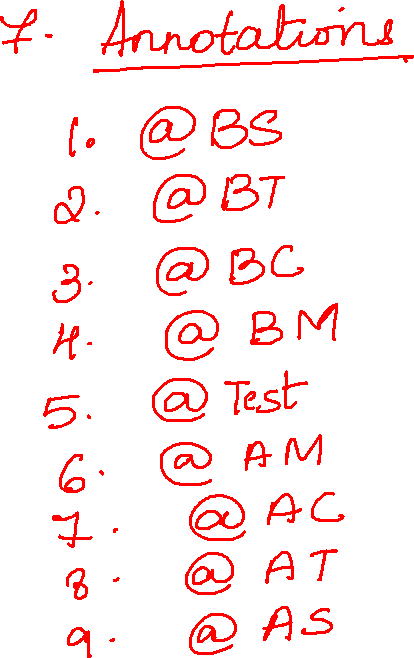 7. Annotations
1. @ BS
2. @ BT
3. @ BC
4. @ BM
5. @ Test
6. @ AM
7. @ AC
8. @ AT
9. @ AS